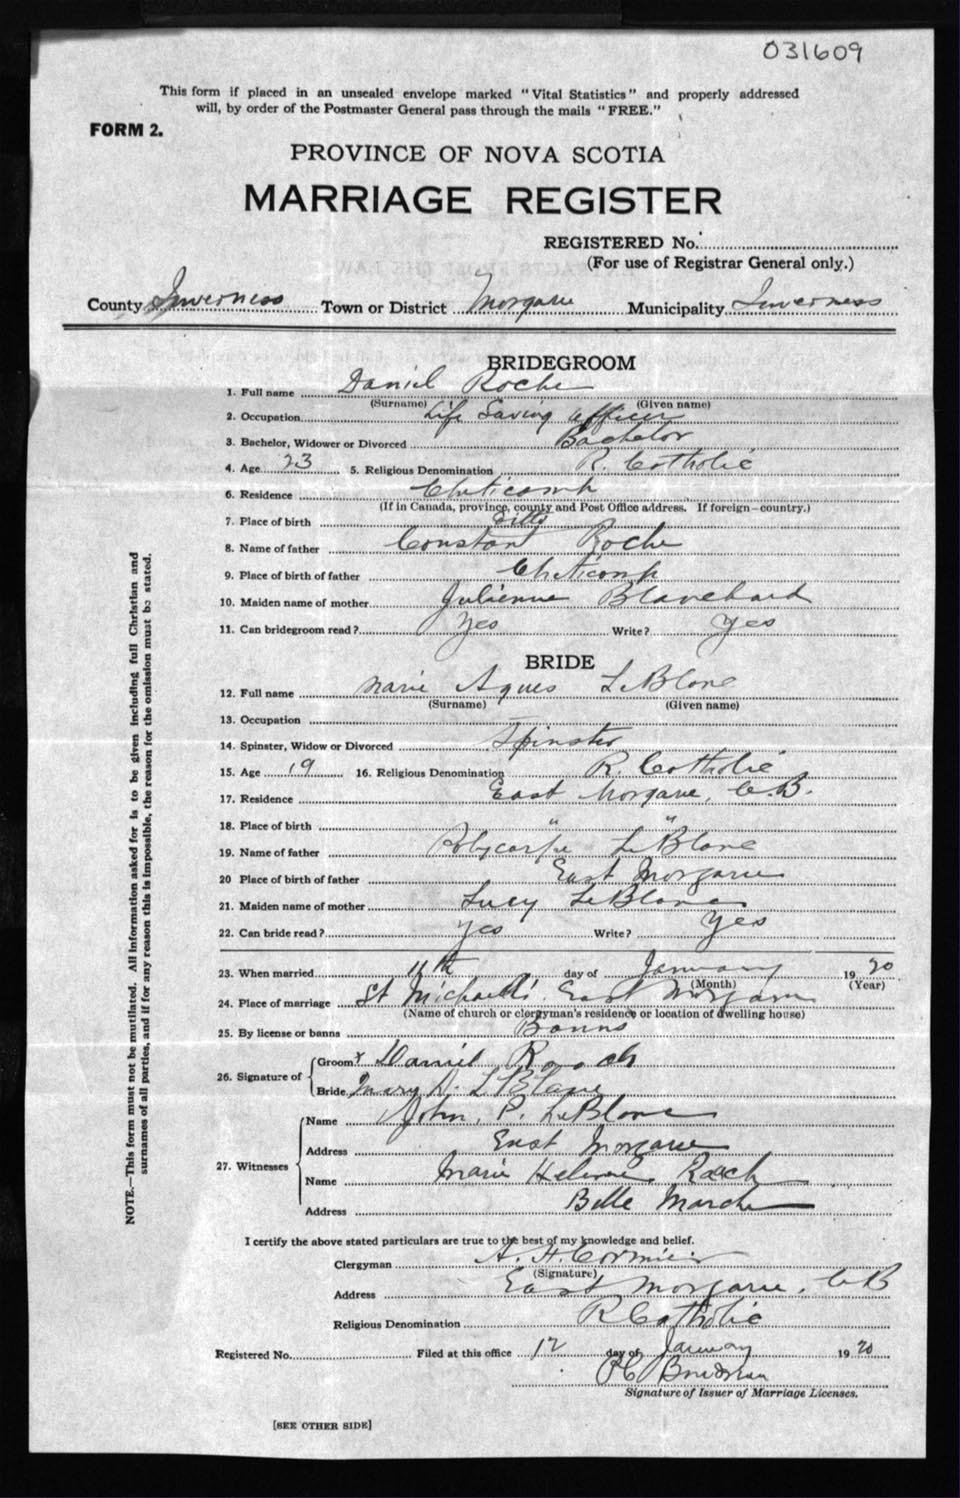 031609
This form if placed in an unsealed envelope marked "Vital Statistics" and properly addressed
will, by order of the Postmaster General pass through the mails "FREE."
FORM 2.
PROVINCE OF NOVA SCOTIA
MARRIAGE REGISTER
REGISTERED No.
(For use of Registrar General only.)
County Inverness Town or District Morgarie Municipality Inverness
BRIDEGROOM
1. Full name Daniel Roche
(Surname) (Given name)
2. Occupation Life Saving officer
3. Bachelor, Widower or Divorced Bachelor
4. Age 23 5. Religious Denomination R. Catholic
6. Residence Cheticamp
(If in Canada, province, county and Post Office address. If foreign—country.)
7. Place of birth ditto
8. Name of father Constant Roche
9. Place of birth of father Cheticamp
10. Maiden name of mother Julienne Blanchard
11. Can bridegroom read? Yes Write? Yes
BRIDE
12. Full name Marie Agnes LeBlanc
(Surname) (Given name)
13. Occupation
14. Spinster, Widow or Divorced Spinster
15. Age 19 16. Religious Denomination R. Catholic
17. Residence East Morgarie, C.B.
18. Place of birth " "
19. Name of father Polycarpe LeBlanc
20 Place of birth of father East Morgarie
21. Maiden name of mother Lucy LeBlanc
22. Can bride read? Yes Write? Yes
23. When married 11th day of January 1920
(Month) (Year)
24. Place of marriage St Michael's East Morgarie
(Name of church or clergyman's residence or location of dwelling house)
25. By license or banns Banns
26. Signature of Groom x Daniel Rooch
Bride Mary A. LeBlanc
27. Witnesses
Name John. P. LeBlanc
Address East Morgarie
Name Marie Helene Roach
Address Belle Marche
I certify the above stated particulars are true to the best of my knowledge and belief.
Clergyman A. H. Cormier
(Signature)
Address East Morgarie, C B
Religious Denomination R Catholic
Registered No. Filed at this office 12 day of January 1920
Signature of Issuer of Marriage Licenses.
[SEE OTHER SIDE]
NOTE.—This form must not be mutilated. All information asked for is to be given including full Christian and
surnames of all parties, and if for any reason this is impossible, the reason for the omission must be stated.